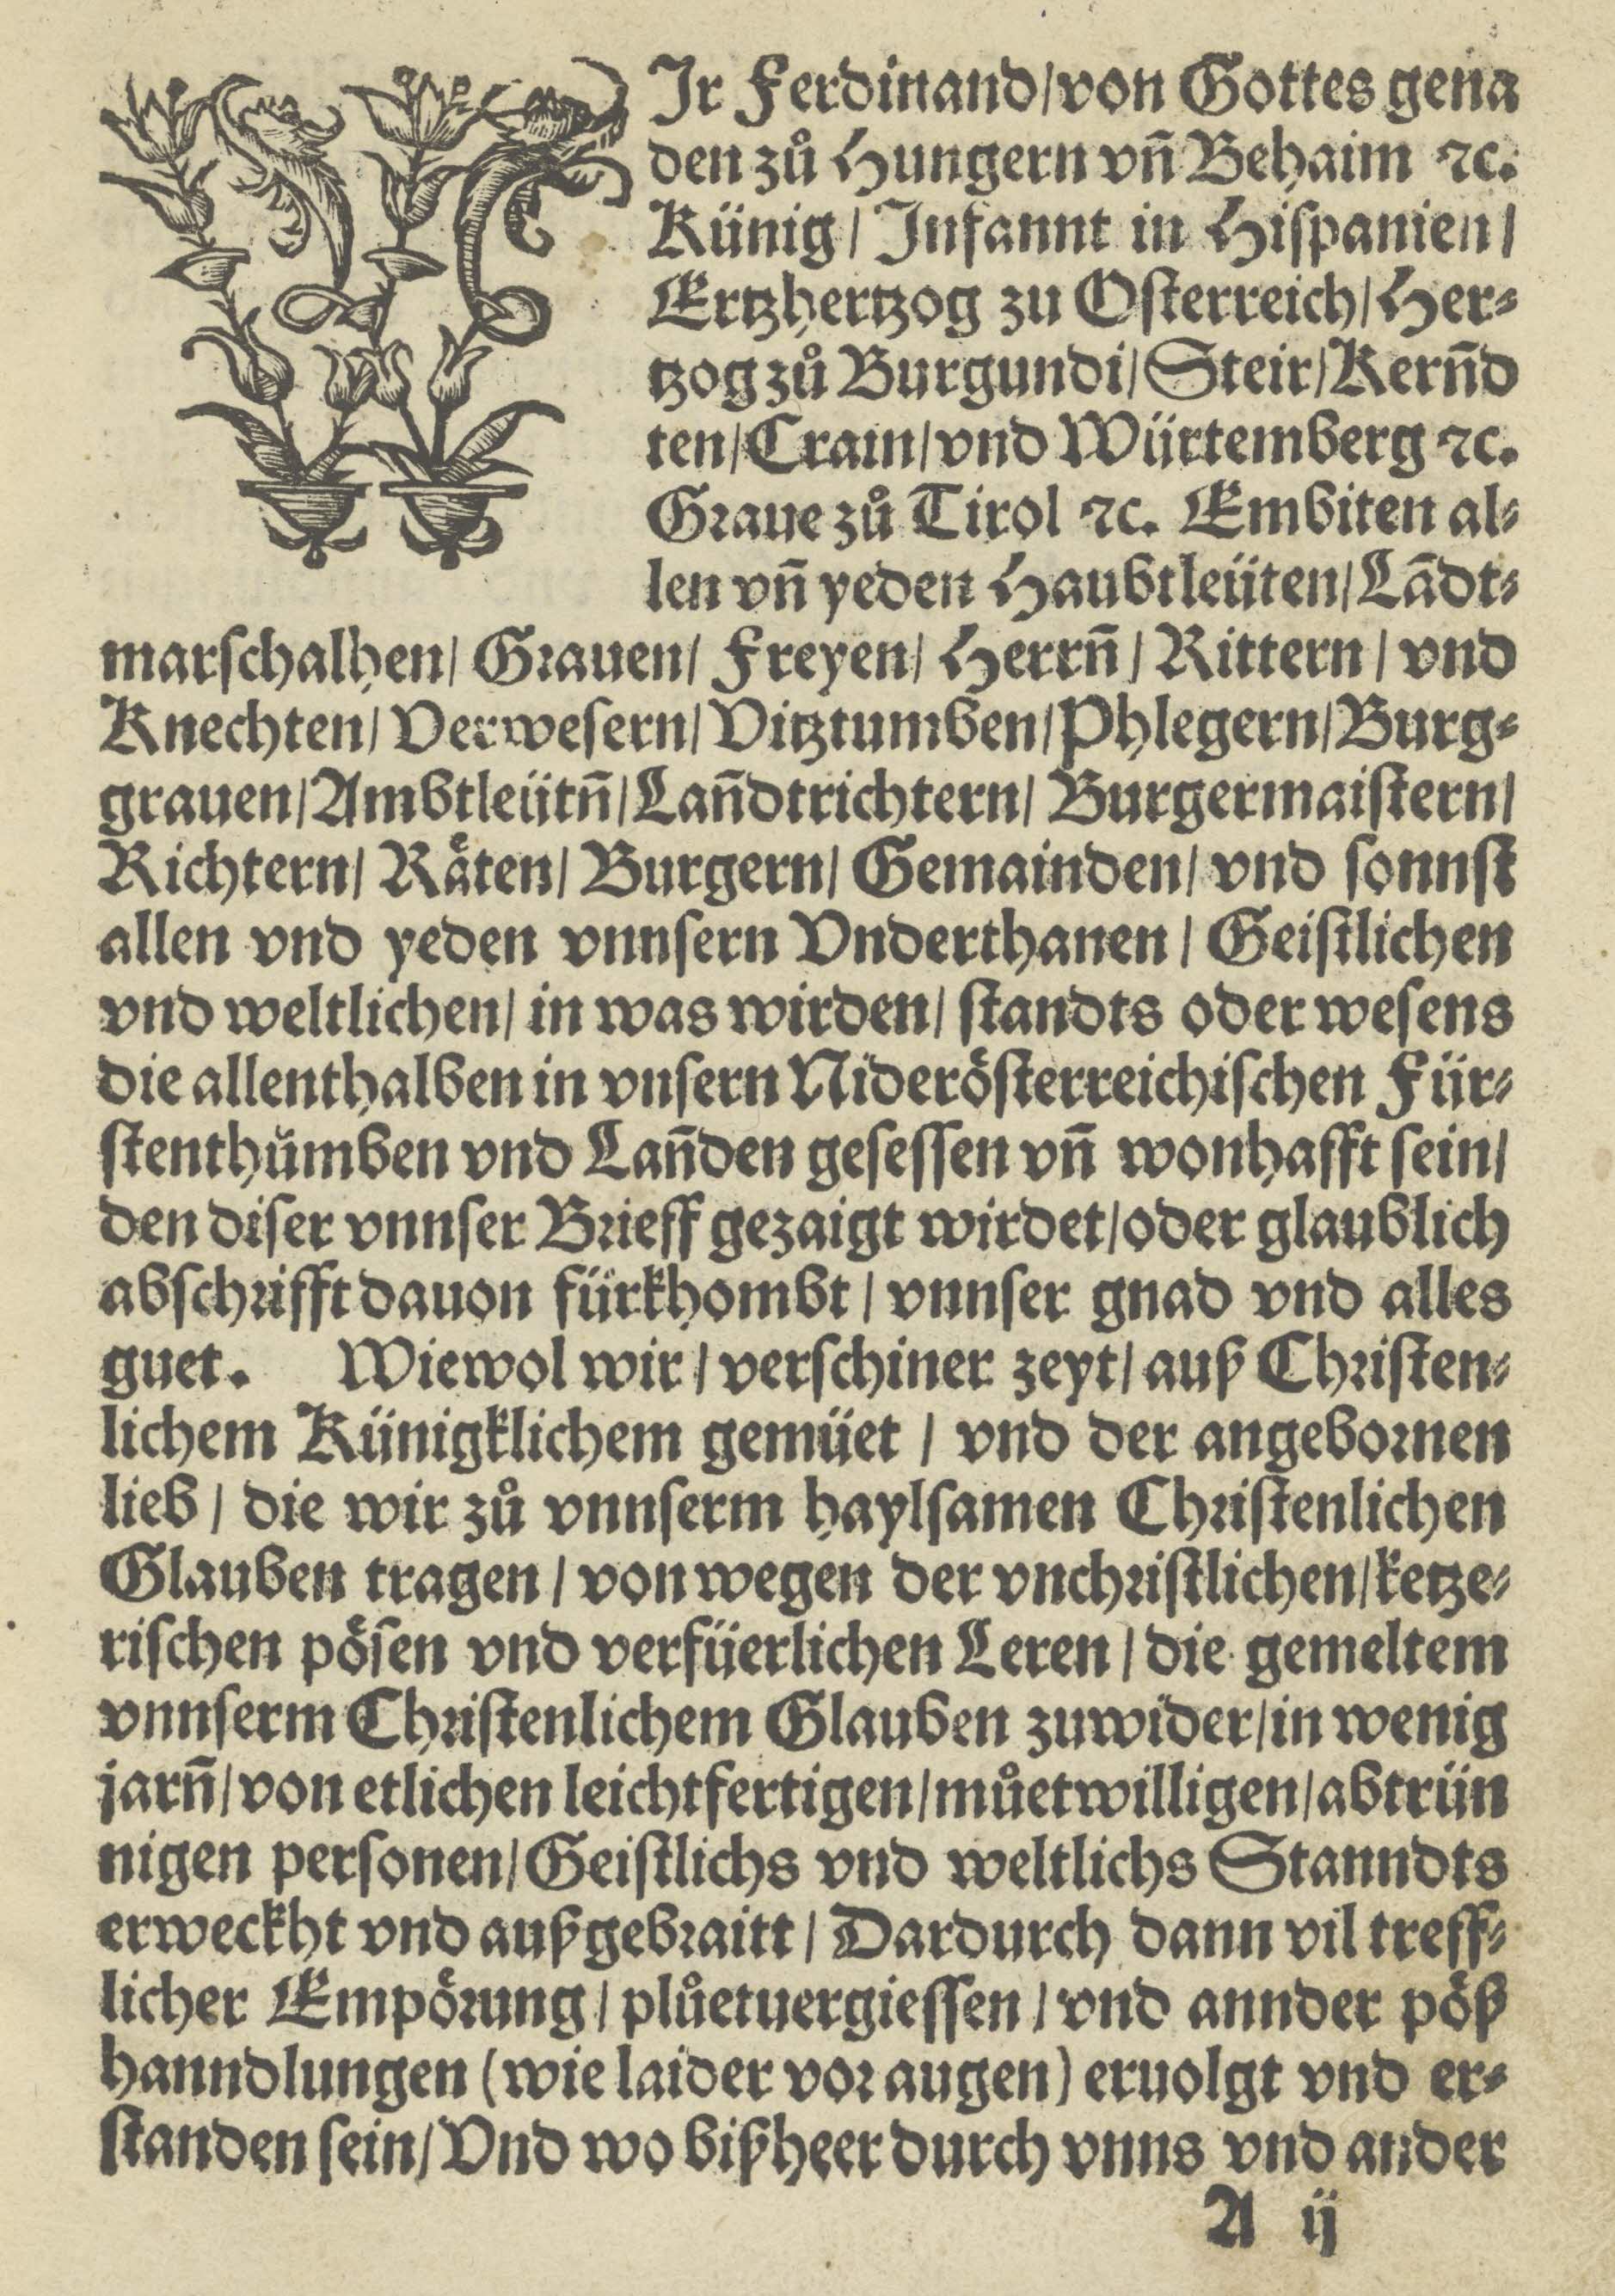 WJr Ferdinand/von Gottes gena
den zů Hungern vñ Behaim ꝛc.
Künig/ Jnfannt in Hiſpanien/
Ertzhertzog zu Oſterreich/Her⸗
tzog zů Burgundi/Steir/Kern̄d
ten/Crain/vnd Würtemberg ꝛc.
Graue zů Tirol ꝛc. Embiten al⸗
len vñ yeden Haubtleüten/Lādt⸗
marſchalhen/ Grauen/ Freyen/ Herrn̄/ Rittern/ vnd
Knechten/ Verweſern/ Vitztumben/Phlegern/Burg⸗
grauen/Ambtleütn̄/Lan̄dtrichtern/ Burgermaiſtern/
Richtern/ Raͤten/ Burgern/ Gemainden/ vnd ſonnſt
allen vnd yeden vnnſern Vnderthanen/ Geiſtlichen
vnd weltlichen/ in was wirden/ ſtandts oder weſens
die allenthalben in vnſern Nideroͤſterreichiſchen Für⸗
ſtenthŭmben vnd Lan̄den geſeſſen vñ wonhafft ſein/
den diſer vnnſer Brieff gezaigt wirdet/oder glaublich
abſchrifft dauon fürkhombt/ vnnſer gnad vnd alles
guet. Wiewol wir/ verſchiner zeyt/ auß Chriſten⸗
lichem Künigklichem gemüet/ vnd der angebornen
lieb/ die wir zů vnnſerm haylſamen Chriſtenlichen
Glauben tragen/ von wegen der vnchriſtlichen/ketze⸗
riſchen poͤſen vnd verfüerlichen Leren/ die gemeltem
vnnſerm Chriſtenlichem Glauben zuwider/in wenig
jarn̄/von etlichen leichtfertigen/můetwilligen/abtrün
nigen perſonen/Geiſtlichs vnd weltlichs Stanndts
erweckht vnd außgebraitt/ Dardurch dann vil treff⸗
licher Empoͤrung/ plůetuergieſſen/ vnd annder poͤß
hanndlungen (wie laider vor augen) eruolgt vnd er⸗
ſtanden ſein/ Vnd wo bißheer durch vnns vnd ander
A ij